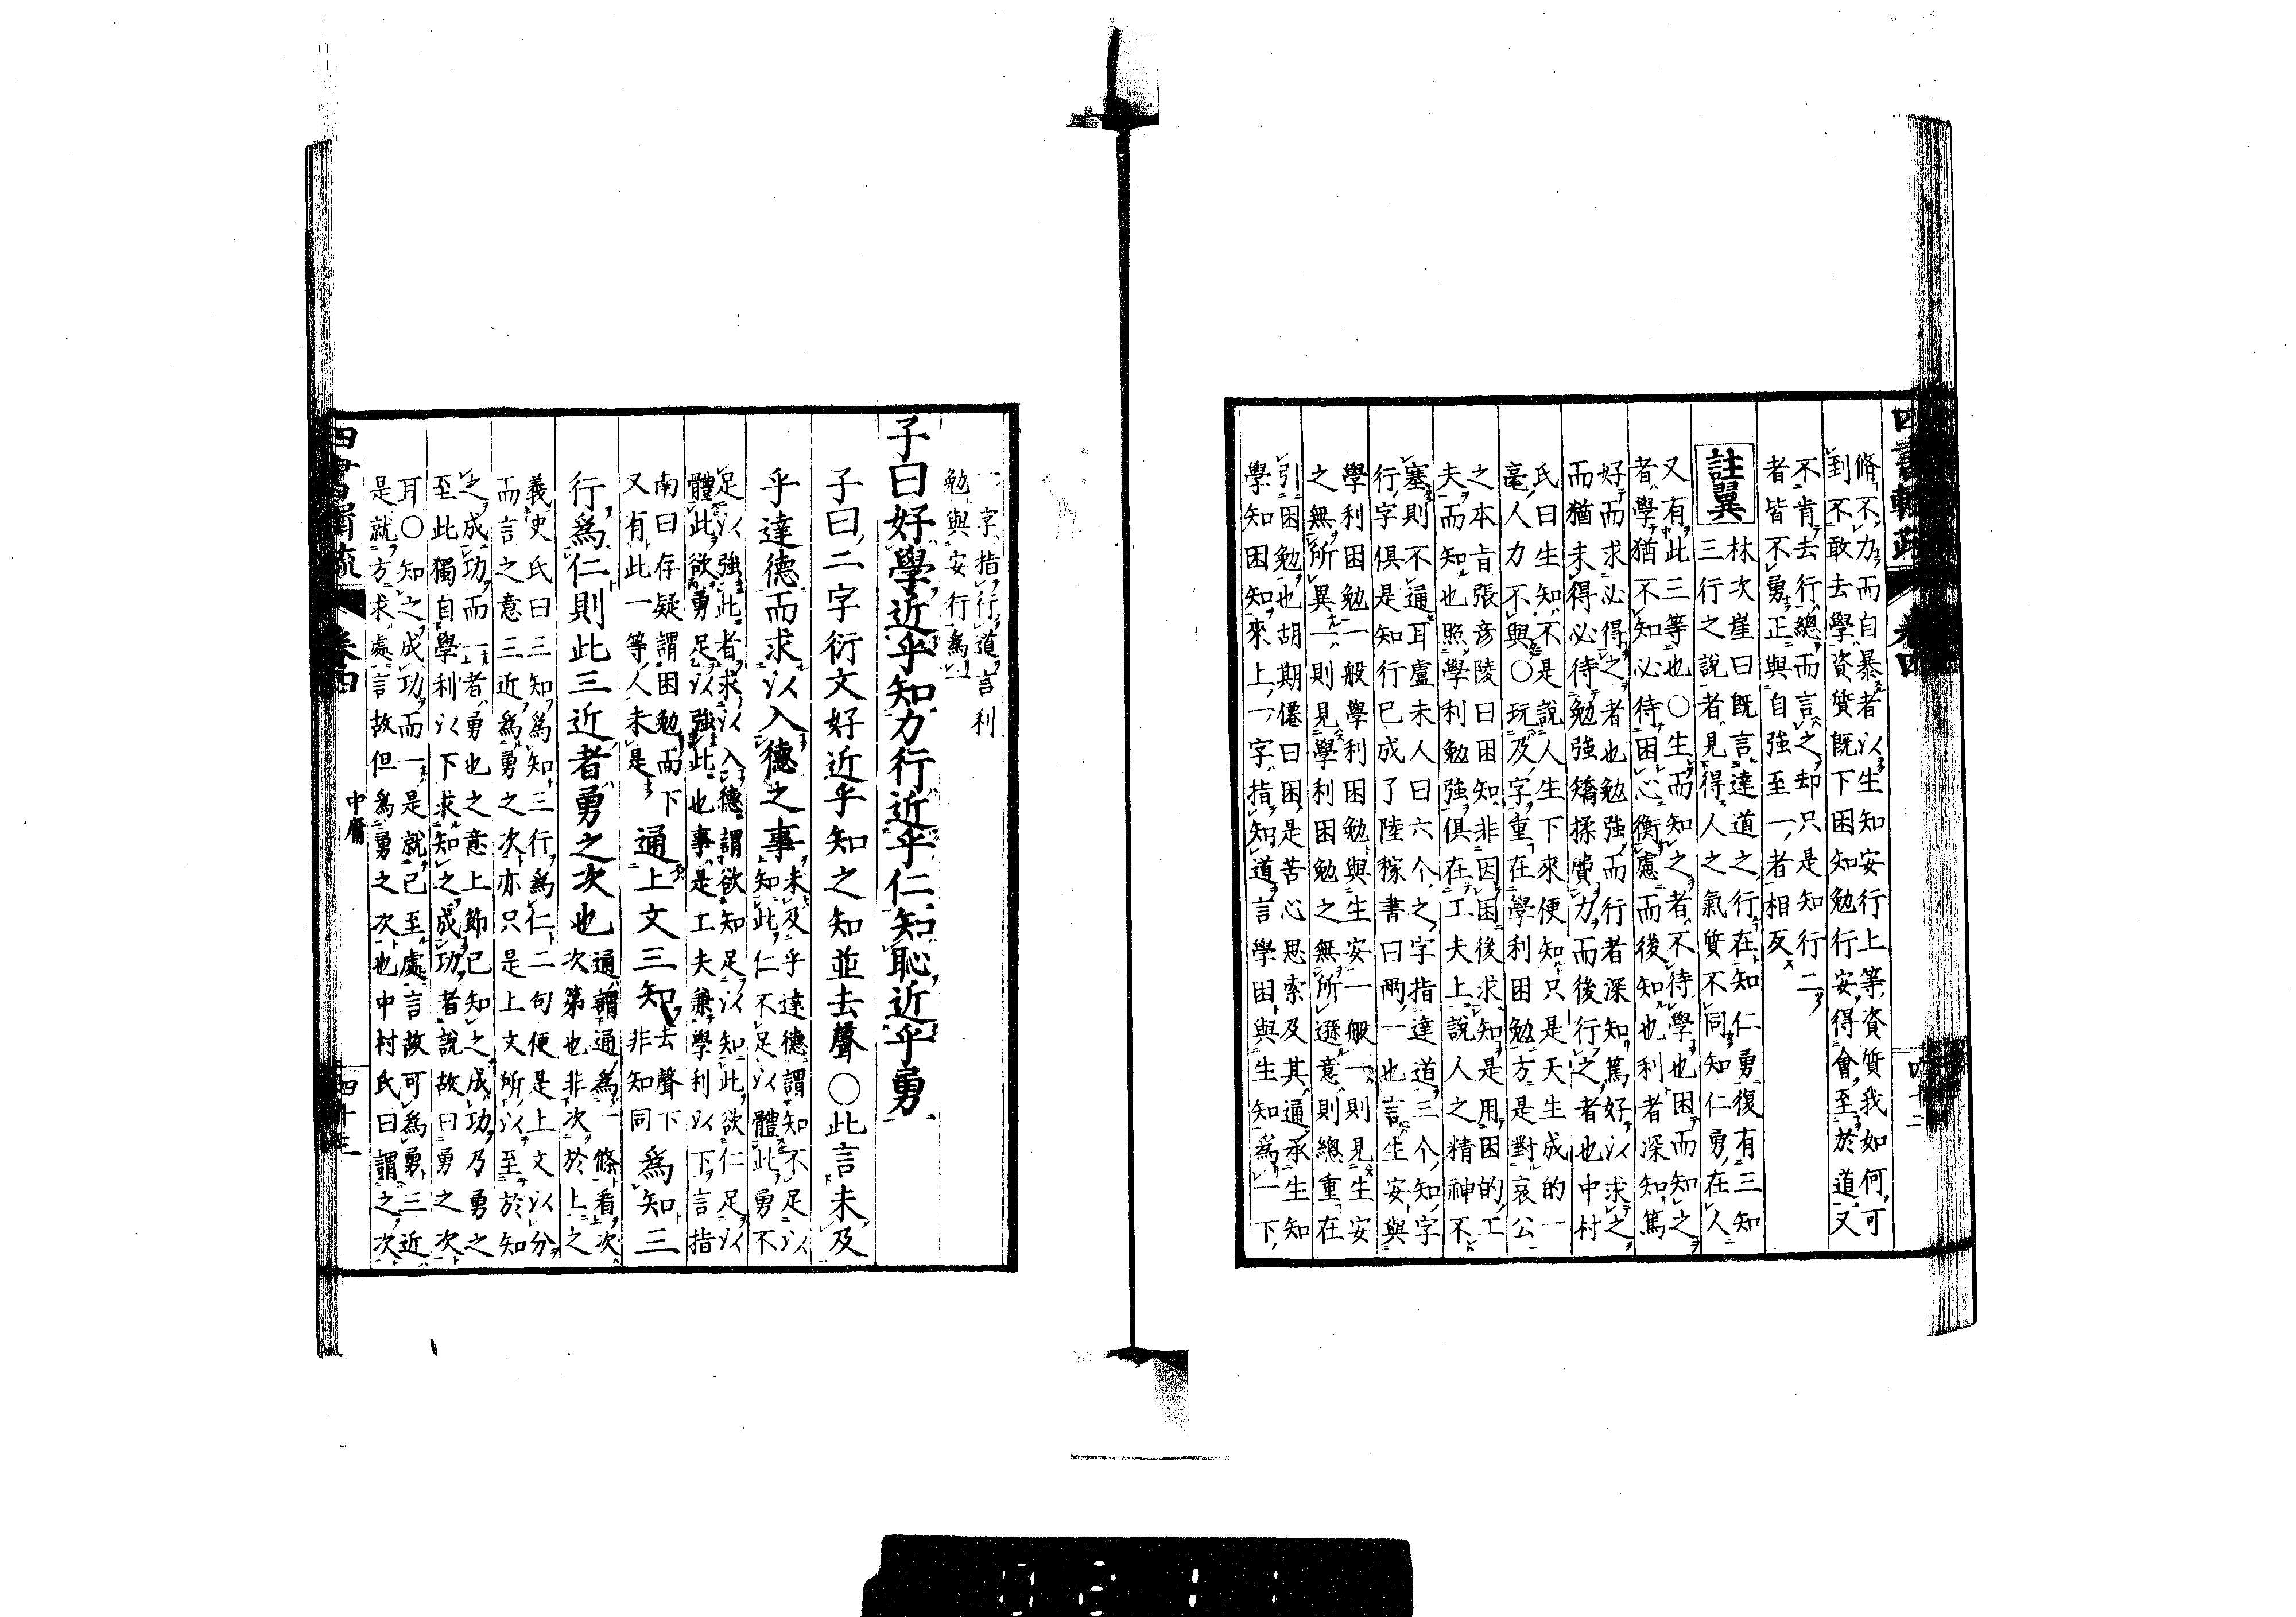 脩不力而自暴者以生知安行上等資質我如何可
到不敢去學資質既下困知勉行安得會至於道又
不肯去行總而言之却只是知行二
者皆不勇正與自強至一者相反
註翼
林次崖曰既言達道之行在知仁勇復有三知
三行之說者見得人之氣質不同知仁勇在人
又有此三等也○生而知之者不待學也困而知之
者學猶不知必待困心衡慮而後知也利者深知篤
好而求必得之者也勉強而行者深知篤好以求之
而猶未得必待勉強矯揉費力而後行之者也中村
氏曰生知不是說人生下來便知只是天生成的一
毫人力不與○玩及字重在學利困勉方是對哀公
之本旨張彥陵曰困知非因困後求知是用困的工
夫而知也照學利勉強俱在工夫上說人之精神不
塞則不通耳盧未人曰六个之字指達道三个知字
行字俱是知行已成了陸稼書曰兩一也言生安與
學利困勉一般學利困勉與生安一般一則見生安
之無所異一則見學利困勉之無所遜意則總重在
引困勉也胡期僊曰困是苦心思索及其通承生知
學知困知來上一字指知道言學困與生知爲一下
四書輯疏
卷四
一字指行道言利
勉與安行爲一
子曰好學近乎知力行近乎仁知恥近乎勇
子曰二字衍文好近乎知之知並去聲○此言未及
乎達德而求以入德之事
未及乎達德謂知不足以
知此仁不足以體此勇不
足以強此者求以入德謂欲知足以知此欲仁足以
體此欲勇足以強此也事是工夫兼學利以下言指
南曰存疑謂困勉而下
又有此一等人未是
通上文三知
去聲下
非知同
爲知三
行爲仁則此三近者勇之次也
通謂通爲一條看次
次第也非次於上之
義史氏曰三知爲知三行爲仁二句便是上文以分
而言之意三近爲勇之次亦只是上文所以至於知
之成功而一者勇也之意上節已知之成功乃勇之
至此獨自學利以下求知之成功者說故曰勇之次
耳○知之成功而一是就已至處言故可爲勇三近
是就方求處言故但爲勇之次也中村氏曰謂之次
卷四
中庸